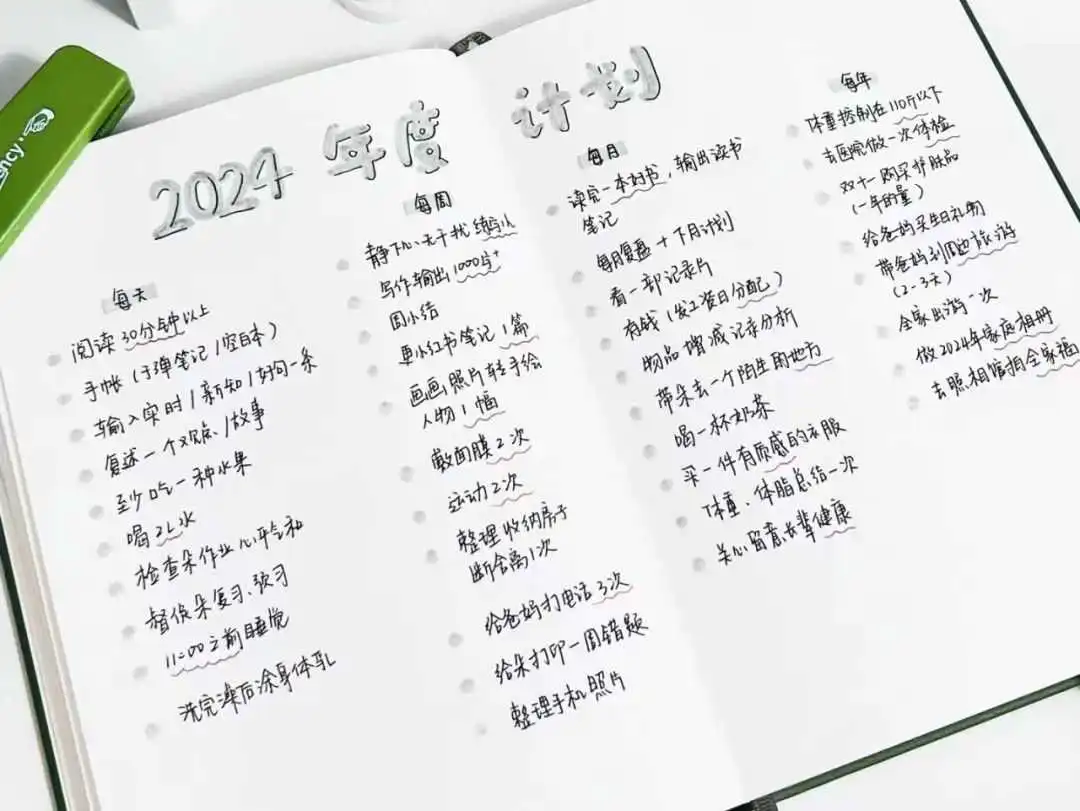 ncy.
2024 年度 计划
每天
阅读30分钟以上
手帐(子弹笔记/空白本)
输入实时/新知/好句一条
复述一个观念/故事
至少吃一种水果
喝2L水
检查朵作业心平气和
督促朵复习、预习
11:00之前睡觉
洗完澡后涂身体乳
每周
静下心、无干扰 练字1h
写作输出1000字+
周小结
更小红书笔记1篇
画画照片转手绘
人物1幅
敷面膜2次
运动2次
整理收纳房子
断舍离1次
给爸妈打电话3次
给朵打印一周错题
整理手机照片
每月
读完一本好书,输出读书
笔记
每月复盘+下月计划
看一部记录片
存钱(发工资日分配)
物品增减记录分析
带朵去一个陌生的地方
喝一杯奶茶
买一件有质感的衣服
体重、体脂总结一次
关心留意长辈健康
每年
体重控制在110斤以下
去医院做一次体检
双十一购买护肤品
(一年的量)
给爸妈买生日礼物
带爸妈到周边旅游
(2-3天)
全家出游一次
做2024年家庭相册
去照相馆拍全家福